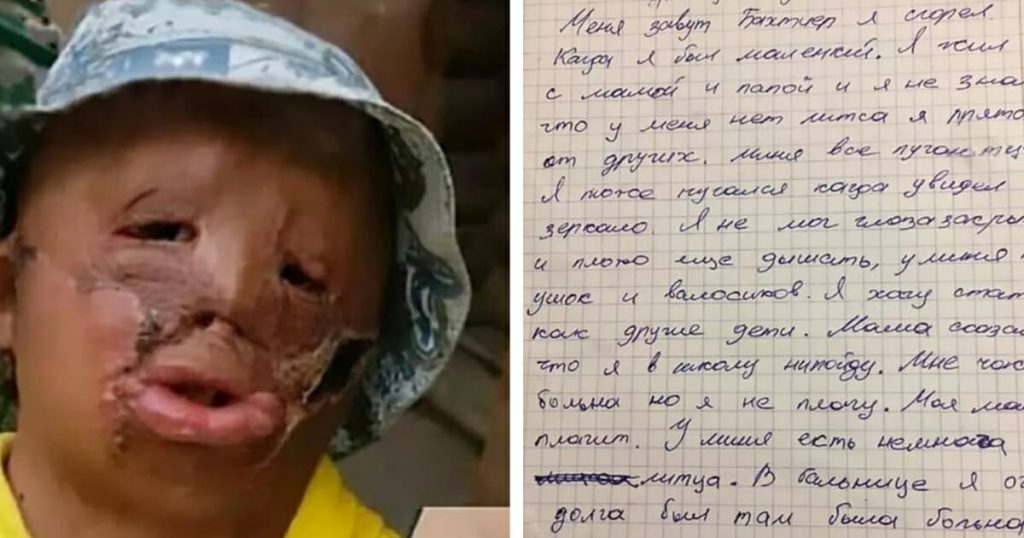 Меня завут Бахтиер я сгорел
Кагда я был маленкий. Я жил
с мамой и папой и я не зна
что у меня нет литса я прята
от других. миня все пугаютца
Я тоже пугался кагда увидел
зеркало. Я не мог глоза закры
и плохо еще дышать, у миня
ушок и валосиков. Я хачу стат
как другие дети. Мама сказал
что я в школу нипойду. Мне
больна но я не плачу. Моя ма
плачит. У миня есть немнога
литца. В бальнице я
долга был там была больна